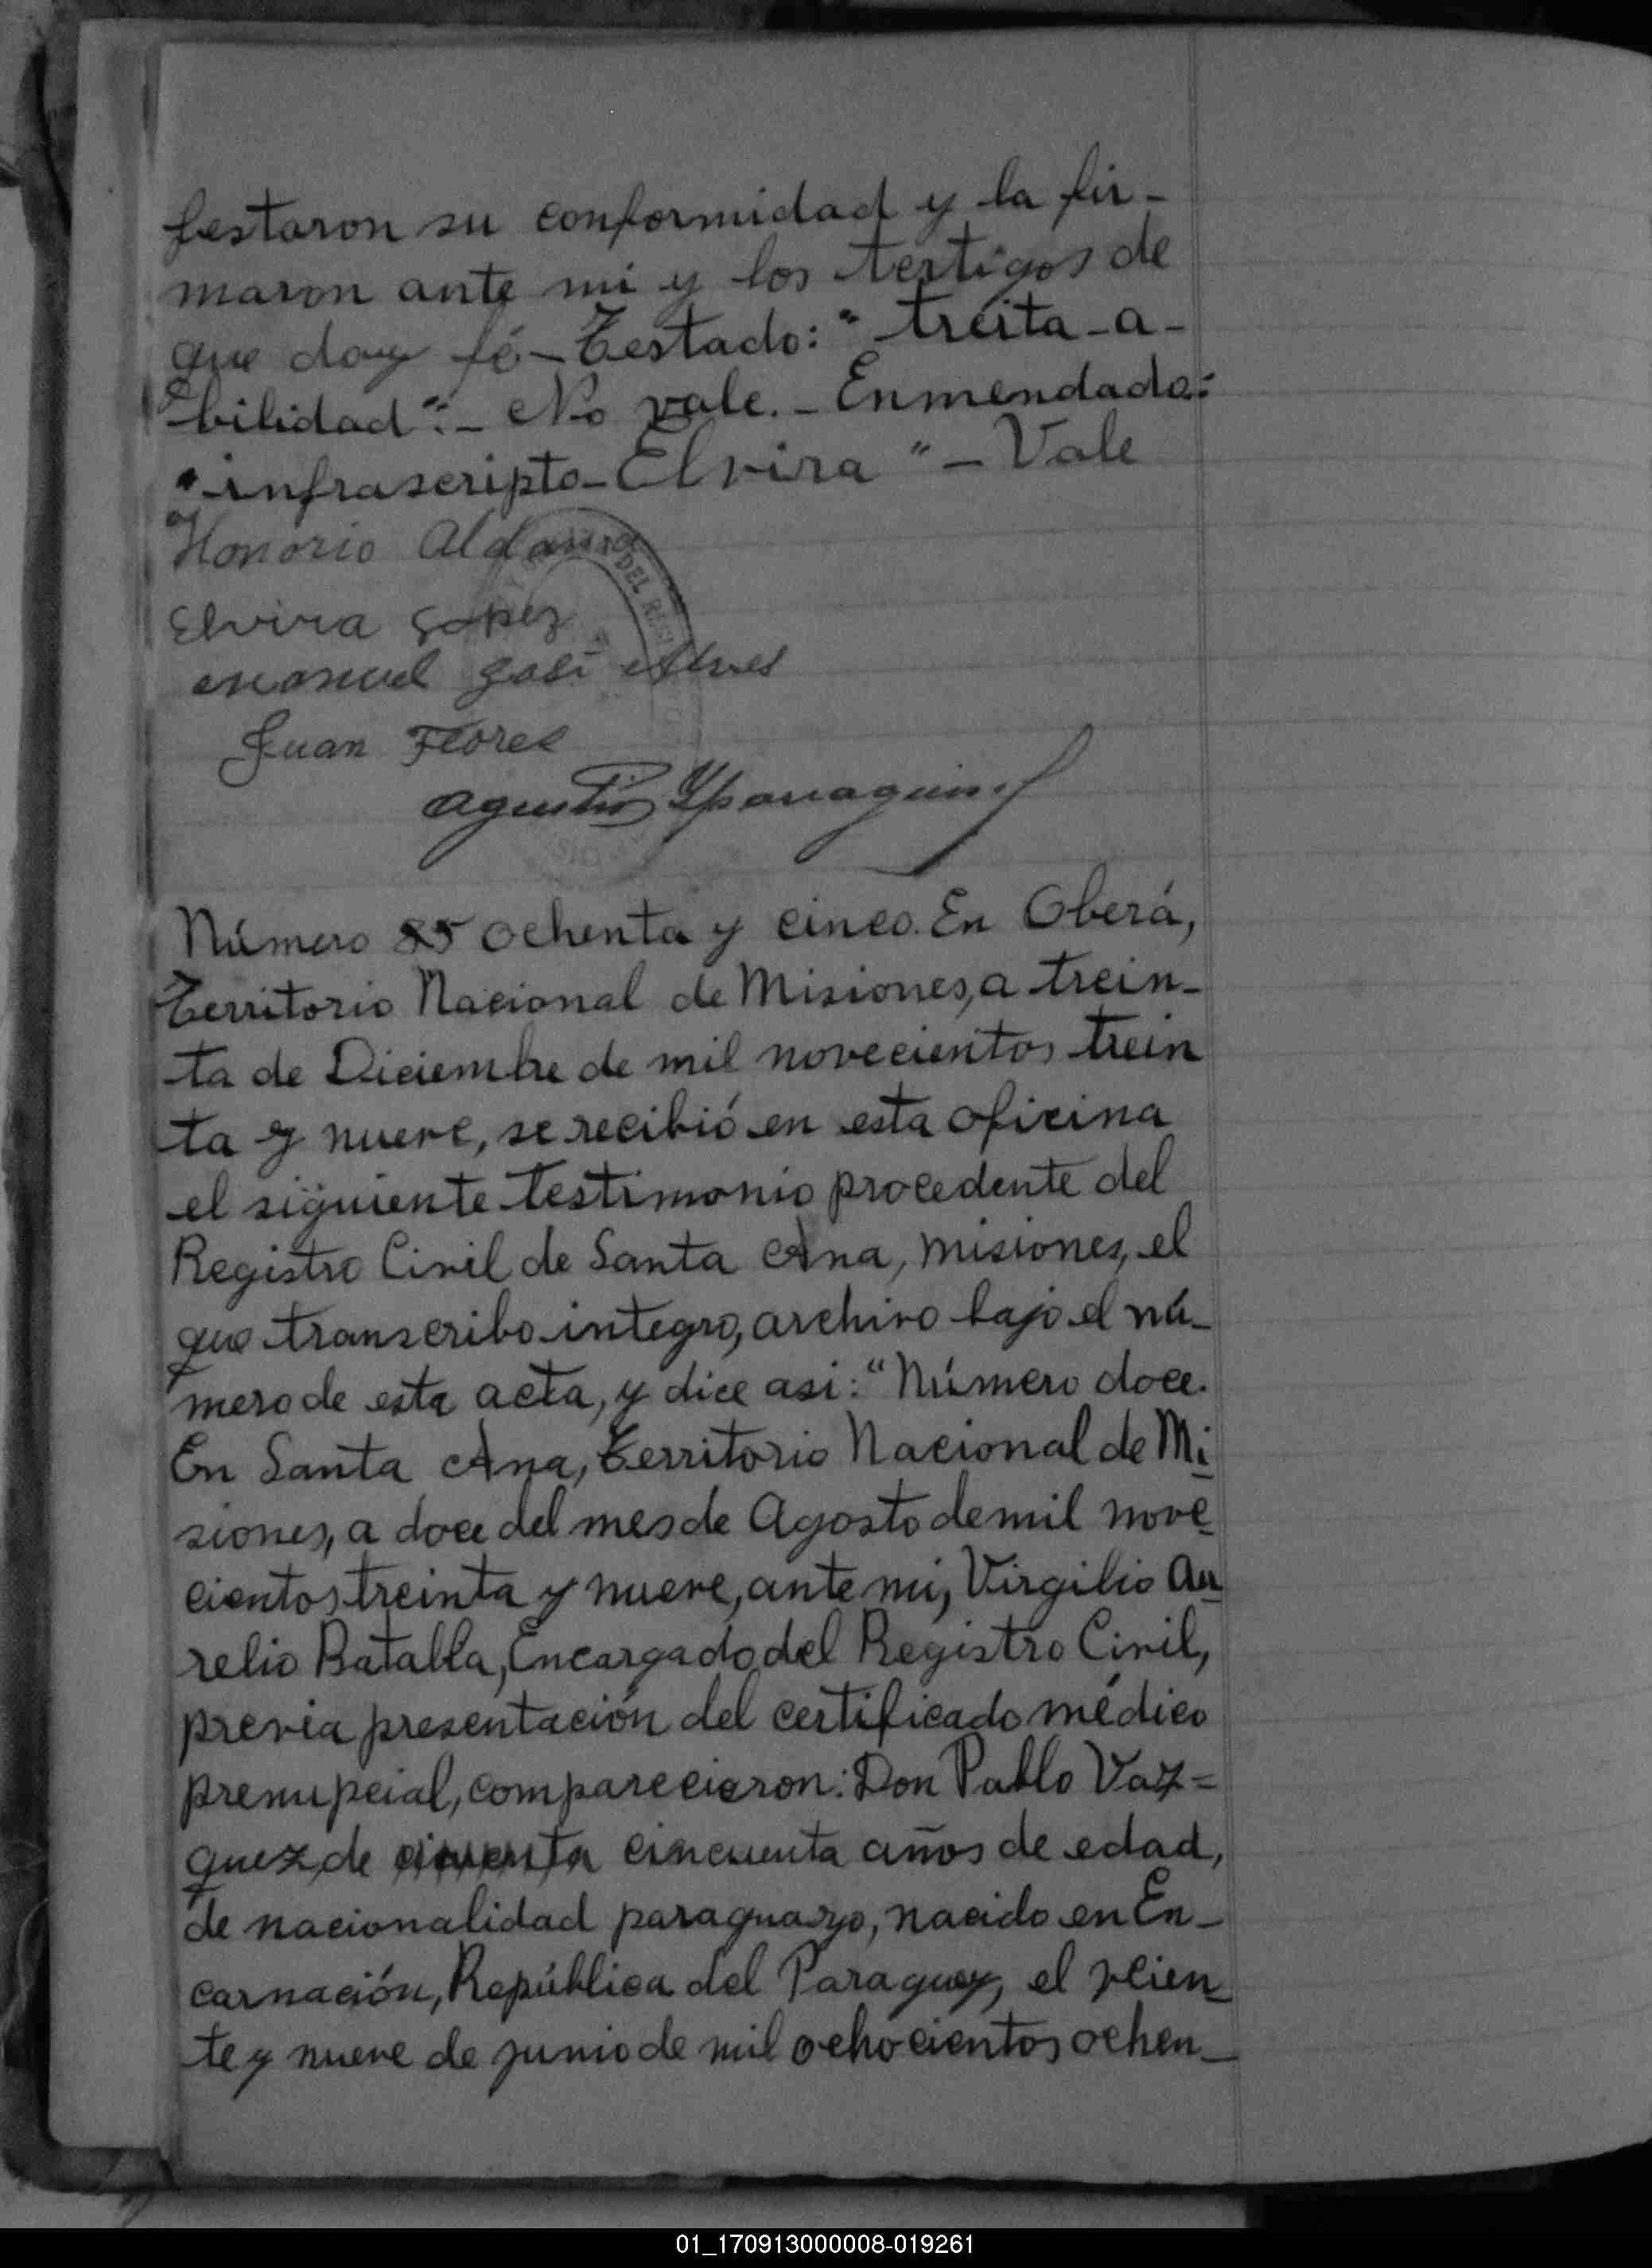 festaron su conformidad y la fir-
maron ante mi y los testigos de
que doy fé - Testado: "treita - a -
bilidad": - No vale. - Enmendado:
"infrascripto - Elvira" - Vale
Honorio Aldana
Elvira Lopez
Manuel José Alves
Juan Flores
Agustin
DEL
Número 85 ochenta y cinco. En Oberá,
Territorio Nacional de Misiones, a trein-
ta de Diciembre de mil novecientos trein
ta y nueve, se recibió en esta oficina
el siguiente testimonio procedente del
Registro Civil de Santa Ana, Misiones, el
que transcribo integro, archivo bajo el nú-
mero de esta acta, y dice asi: "Número doce.
En Santa Ana, Territorio Nacional de Mi
siones, a doce del mes de Agosto de mil nove
cientos treinta y nueve, ante mi, Virgilio Au
relio Batalla, Encargado del Registro Civil,
previa presentación del certificado médico
prenupcial, comparecieron: Don Pablo Vaz=
quez, de cincuenta años de edad,
de nacionalidad paraguayo, nacido en En-
carnación, República del Paraguay, el vein
te y nueve de junio de mil ochocientos ochen-
01_170913000008-019261